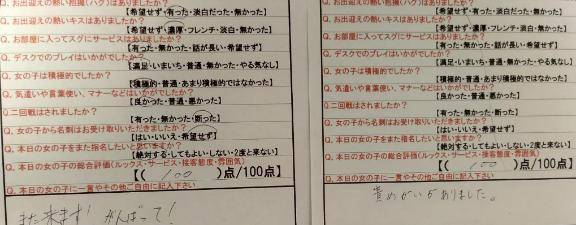 Q. お出迎えの熱い抱擁(ハグ)はありましたか？
【希望せず・有った・淡白だった・無かった】
Q. お出迎えの熱いキスはありましたか？
【希望せず・濃厚・フレンチ・淡白・無かった】
Q. お部屋に入ってスグにサービスはありましたか？
【有った・無かった・話が長い・希望せず】
Q. デスクでのプレイはいかがでしたか？
【満足・いまいち・普通・無かった・やる気なし】
Q. 女の子は積極的でしたか？
【積極的・普通・あまり積極的ではなかった】
Q. 気遣いや言葉使い、マナーなどはいかがでしたか？
【良かった・普通・悪かった】
Q. 二回戦はされましたか？
【有った・無かった・断った】
Q. 女の子から名刺はお受け取りいただきましたか？
【はい・いいえ・希望せず】
Q. 本日の女の子をまた指名したいと思いますか？
【絶対する・してもよい・しない・2度と来ない】
Q. 本日の女の子の総合評価(ルックス・サービス・接客態度・雰囲気)
【( 100 )点/100点】
Q. 本日の女の子に一言やその他ご自由に記入下さい
また来ます! がんばって!
Q. お出迎えの熱い抱擁(ハグ)はありましたか？
【希望せず・有った・淡白だった・無かった】
Q. お出迎えの熱いキスはありましたか？
【希望せず・濃厚・フレンチ・淡白・無かった】
Q. お部屋に入ってスグにサービスはありましたか？
【有った・無かった・話が長い・希望せず】
Q. デスクでのプレイはいかがでしたか？
【満足・いまいち・普通・無かった・やる気なし】
Q. 女の子は積極的でしたか？
【積極的・普通・あまり積極的ではなかった】
Q. 気遣いや言葉使い、マナーなどはいかがでしたか？
【良かった・普通・悪かった】
Q. 二回戦はされましたか？
【有った・無かった・断った】
Q. 女の子から名刺はお受け取りいただきましたか？
【はい・いいえ・希望せず】
Q. 本日の女の子をまた指名したいと思いますか？
【絶対する・してもよい・しない・2度と来ない】
Q. 本日の女の子の総合評価(ルックス・サービス・接客態度・雰囲気)
【( 100 )点/100点】
Q. 本日の女の子に一言やその他ご自由に記入下さい
責めがいがありました。